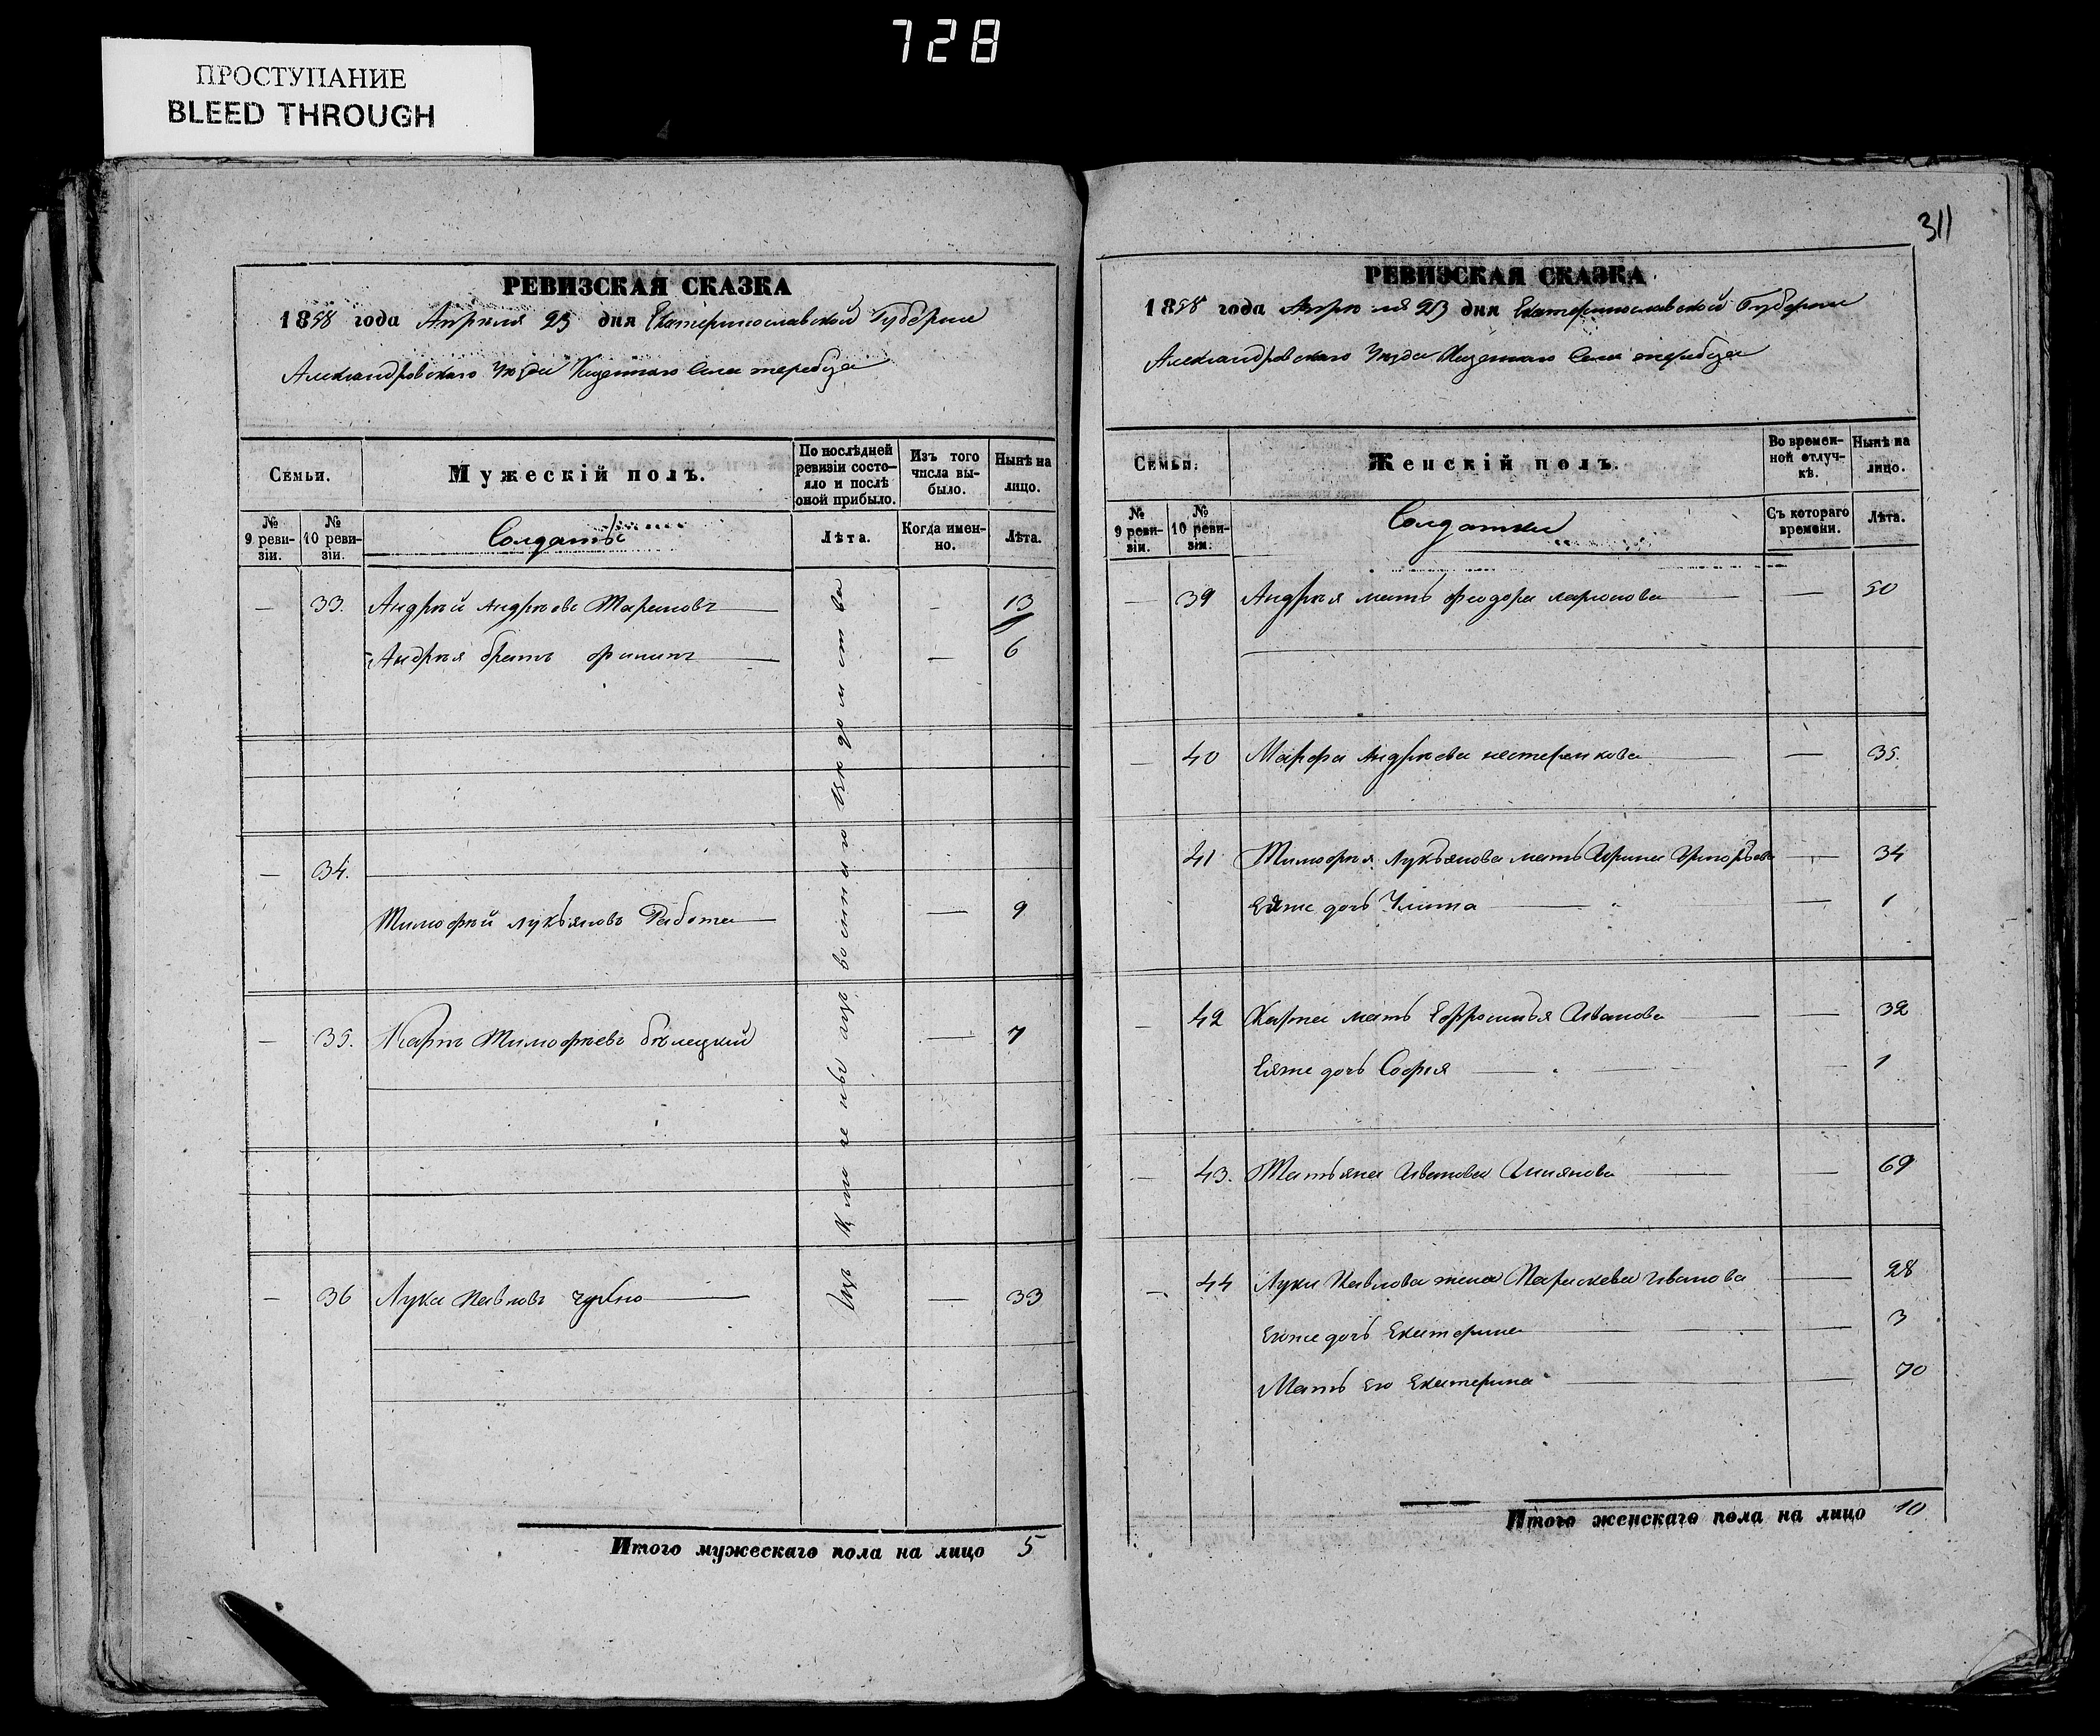 728
ПРОСТУПАНИЕ
BLEED THROUGH
РЕВИЗСКАЯ СКАЗКА
1858 года Апрѣля 23 дня Екатеринославской Губерніи
Александровскаго Уѣзда Казеннаго Села
Семьи.
Мужескій полъ.
По послѣдней ревизіи состояло и послѣ оной прибыло.
Изъ того числа выбыло.
Нынѣ на лицо.
№ 9 ревизіи.
№ 10 ревизіи.
Солдаты
Лѣта.
Когда именно.
Лѣта.
— 33. Андрей Андреевъ Тарановъ — — 13
Андрея братъ Филипъ — — 6
— 34.
Тимофей Лукьяновъ Работа — — 9
— 35. Карпъ Тимофеевъ бѣлецкій — 7
— 36 Лука Павловъ — — 33
Итого мужескаго пола на лицо 5
311
РЕВИЗСКАЯ СКАЗКА
1858 года Апрѣля 23 дня Екатеринославской Губерніи
Александровскаго Уѣзда Казеннаго Села
Семьи.
Женскій полъ.
Во временной отлучкѣ.
Нынѣ на лицо.
№ 9 ревизіи.
№ 10 ревизіи.
Солдатки
Съ котораго времени.
Лѣта.
— 39 Андрея мать Феодора ларионова — — 50
— 40 Марфа Андреева нестеренкова — — 35.
41 Тимофея Лукьянова мать Ирина Григорьева — 34
Еяже дочь Улита — — 1
— 42 Карпа мать Ефросинья Иванова — — 32
Еяже дочь Софія — — 1
— 43. Татьяна Иванова — — 69
— 44 Луки Павлова жена Параскева Иванова — 28
Егоже дочь Екатерина — — 3
Мать Его Екатерина — — 70
Итого женскаго пола на лицо 10